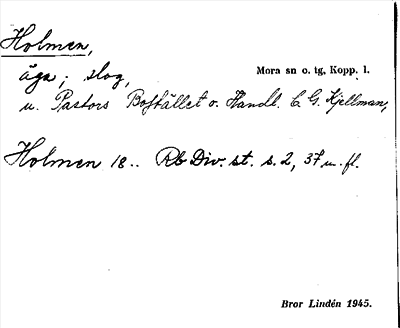 Holmen,
äga; slog,
Mora sn o. tg, Kopp. l.
u. Pastors Bostället o. Handl. C G. Kjellman,
Holmen 18.. Rb Div. st. s. 2, 37 m. fl.
Bror Lindén 1945.